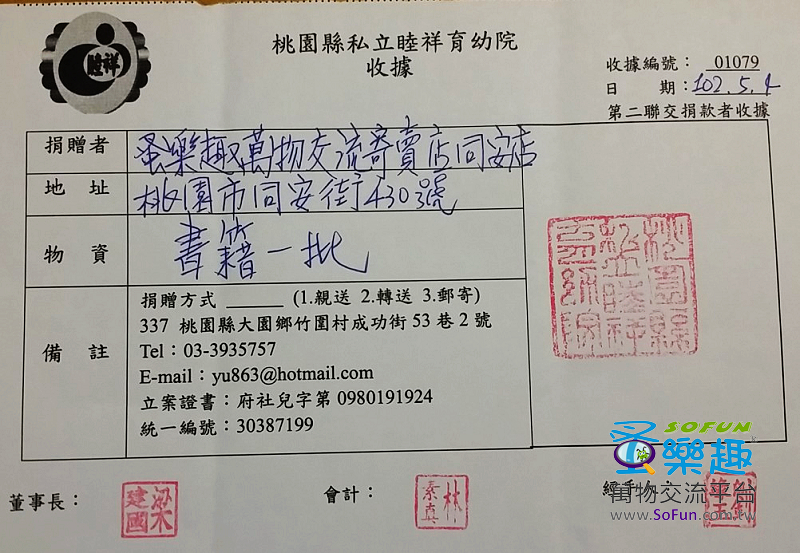 睦祥
桃園縣私立睦祥育幼院
收據
收據編號： 01079
日 期：102.5.4
第二聯交捐款者收據
捐贈者 蚤樂趣萬物交流寄賣店同安店
地 址 桃園市同安街430號
物 資 書籍一批
備 註
捐贈方式 ______ (1.親送 2.轉送 3.郵寄)
337 桃園縣大園鄉竹圍村成功街53巷2號
Tel：03-3935757
E-mail：yu863@hotmail.com
立案證書：府社兒字第 0980191924
統一編號：30387199
桃園縣私立睦祥育幼院
SOFUN
蚤樂趣
萬物交流平台
www.SoFun.com.tw
董事長： 梁建國
會計： 林素真
經手人：